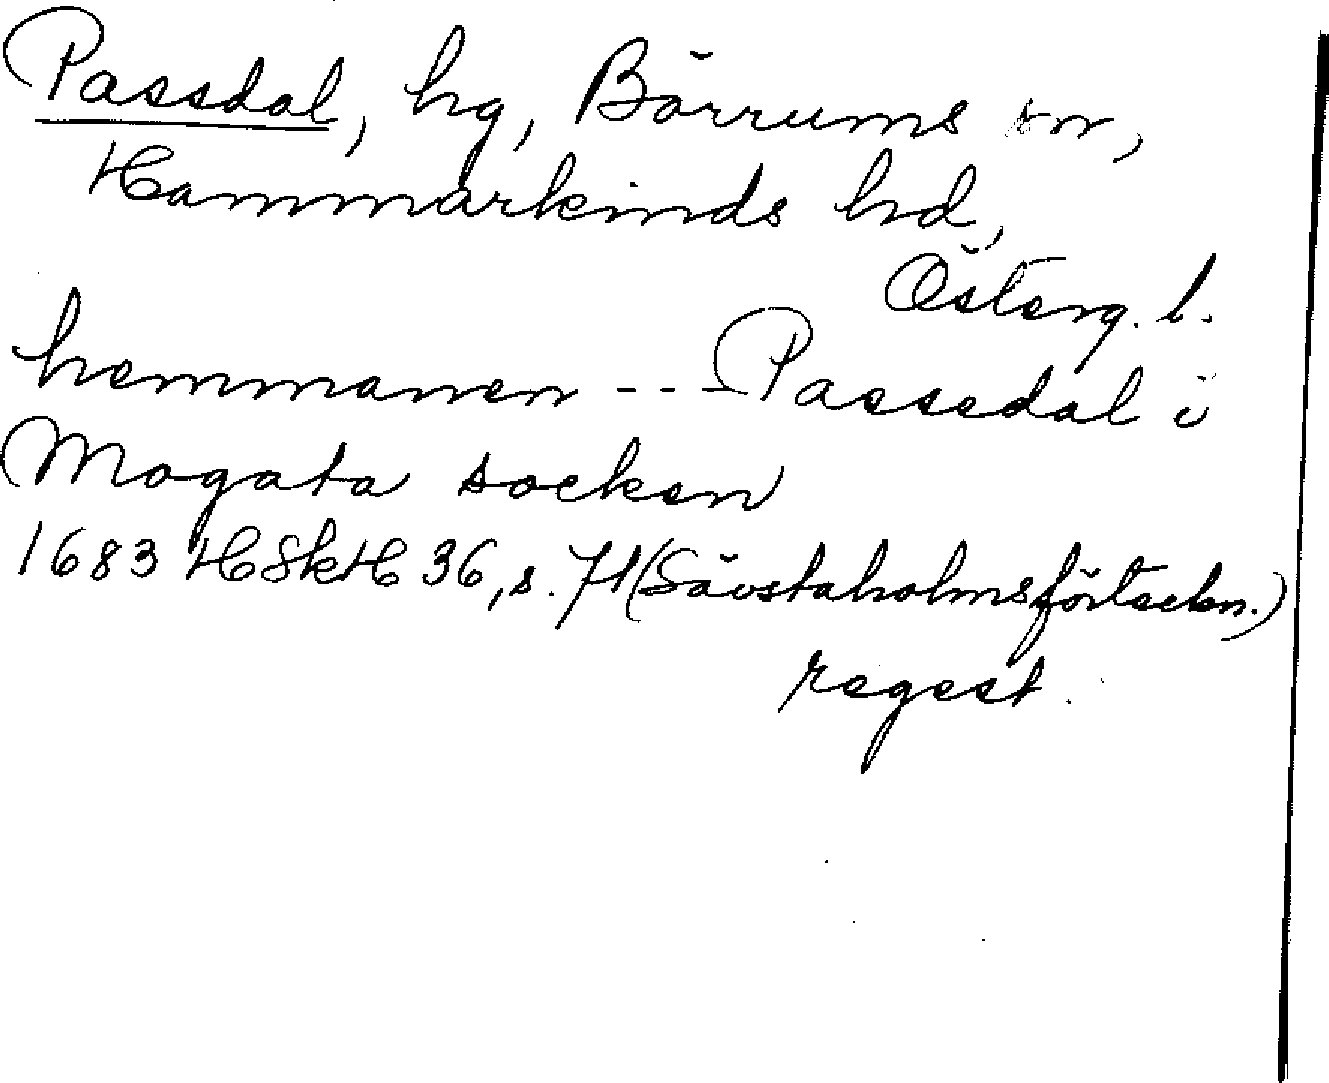 Passdal, hg, Börrums sn,
Hammarkinds hd,
Österg. l.
hemmanen - - - Passedal i
Mogata socken
1683 HSkH 36, s. 71 (Sävstaholmsförteckn.)
regest.